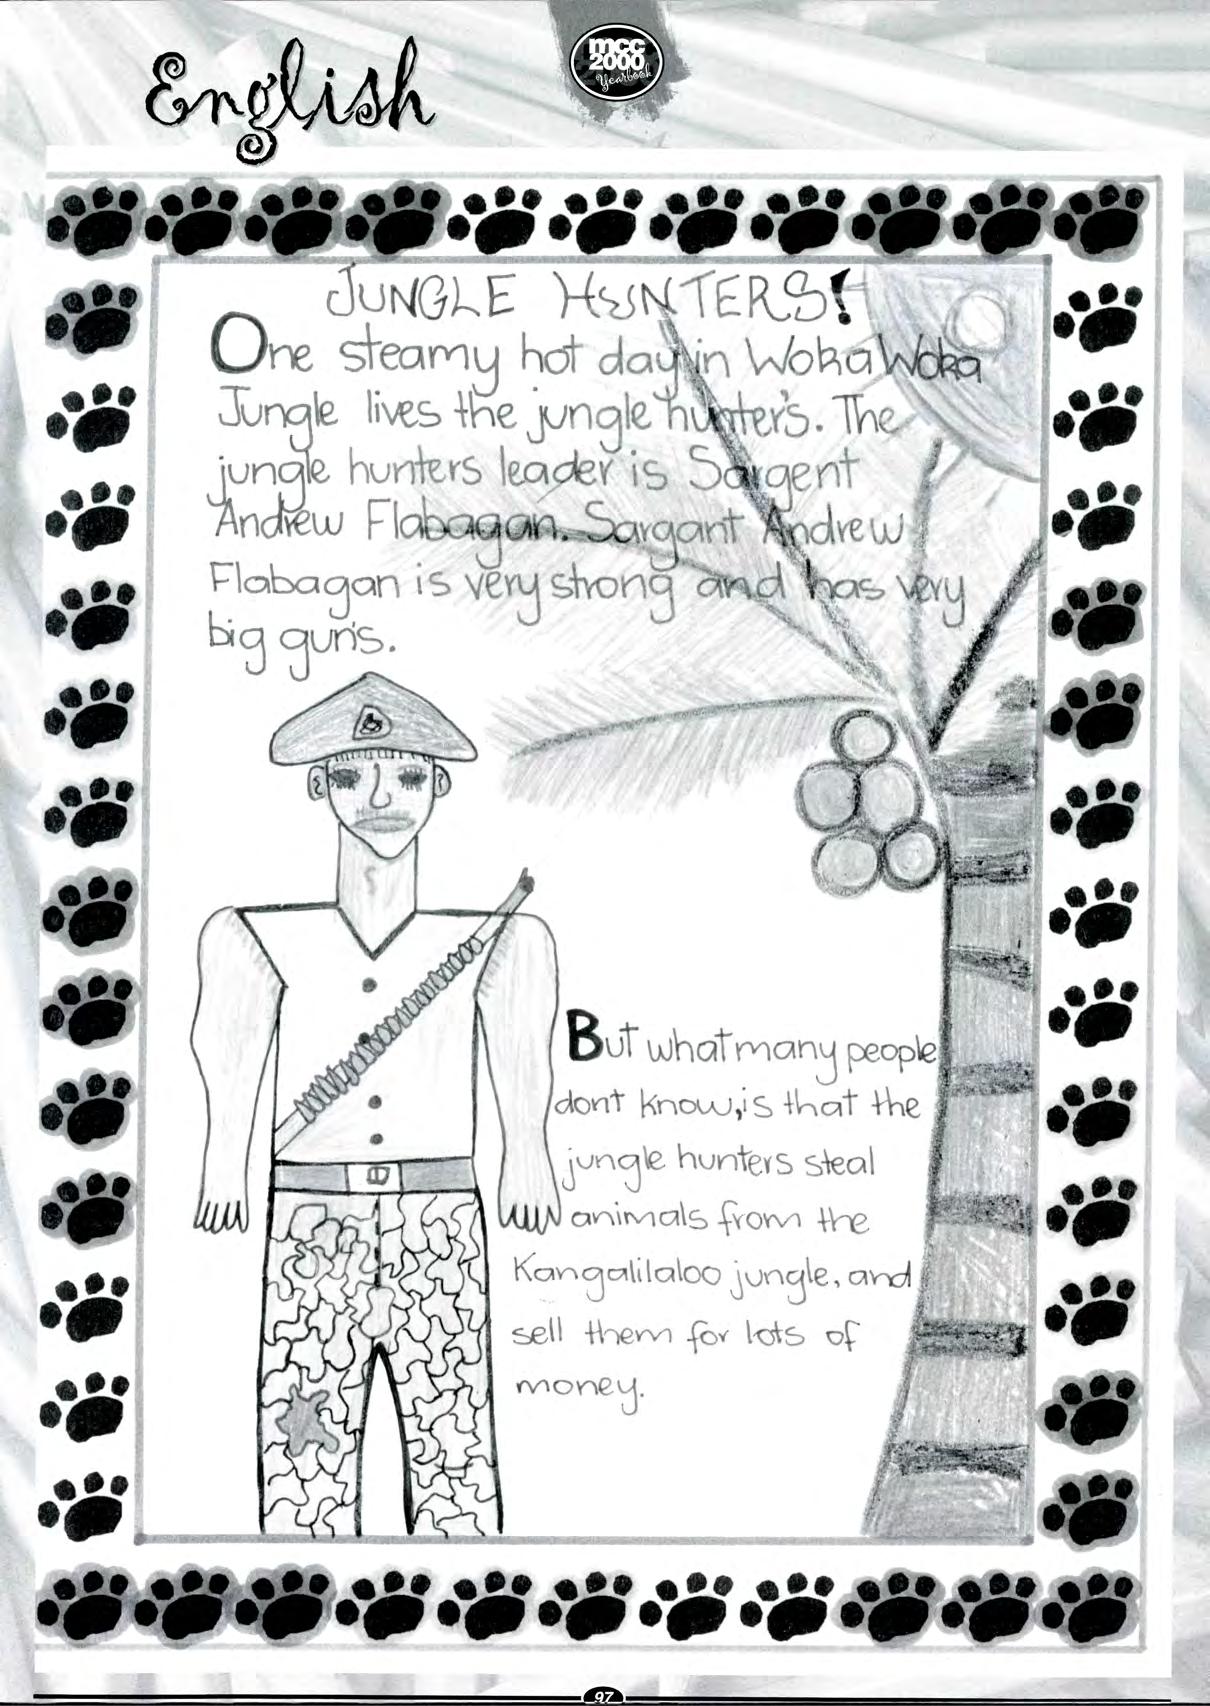 English
mcc
2000
Yearbook
JUNGLE HUNTERS!
One steamy hot day in Woka Woka
Jungle lives the jungle hunter's. The
jungle hunters leader is Sargent
Andrew Flabagan. Sargant Andrew
Flabagan is very strong and has very
big gun's.
But what many people
dont know, is that the
jungle hunters steal
animals from the
Kangalilaloo jungle, and
sell them for lots of
money.
97